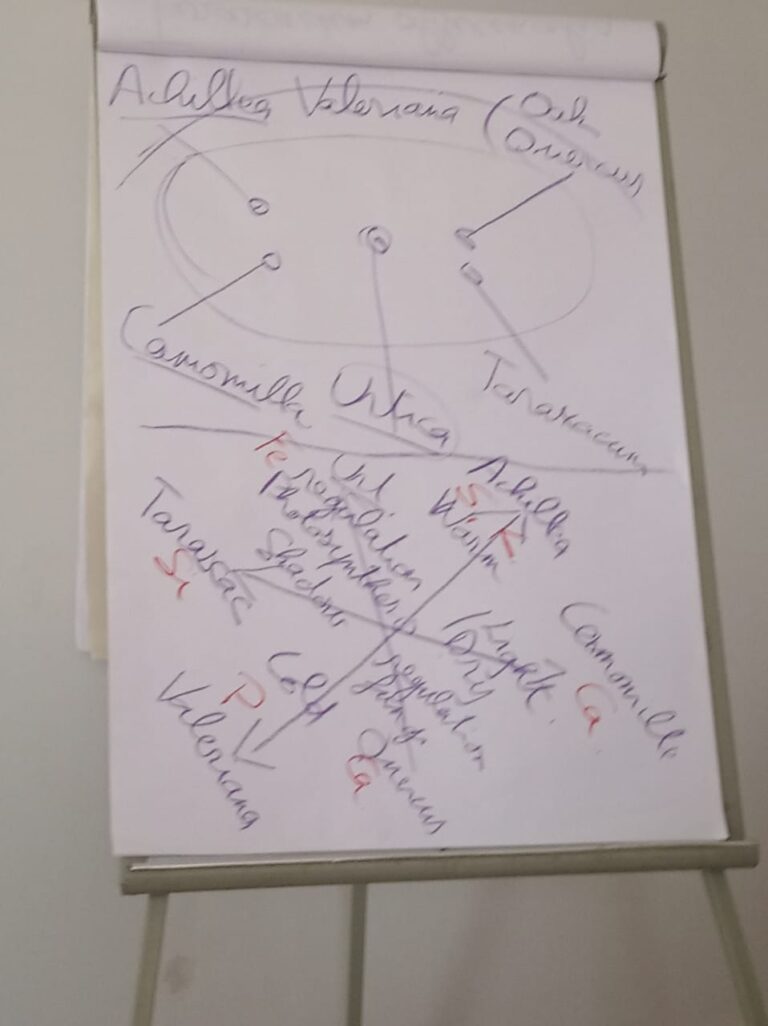 Achillea Valeriana (Oak
Quercus
Camomilla
Urtica
Taraxacum
Fe
Urt.
Achillea
regulation
Si K
Warm
Photosynthesis
Taraxac
Si
Shadow
Light
Dry
Camomilla
Ca
Cold
P
Valeriana
regulation
Quercus
Ca